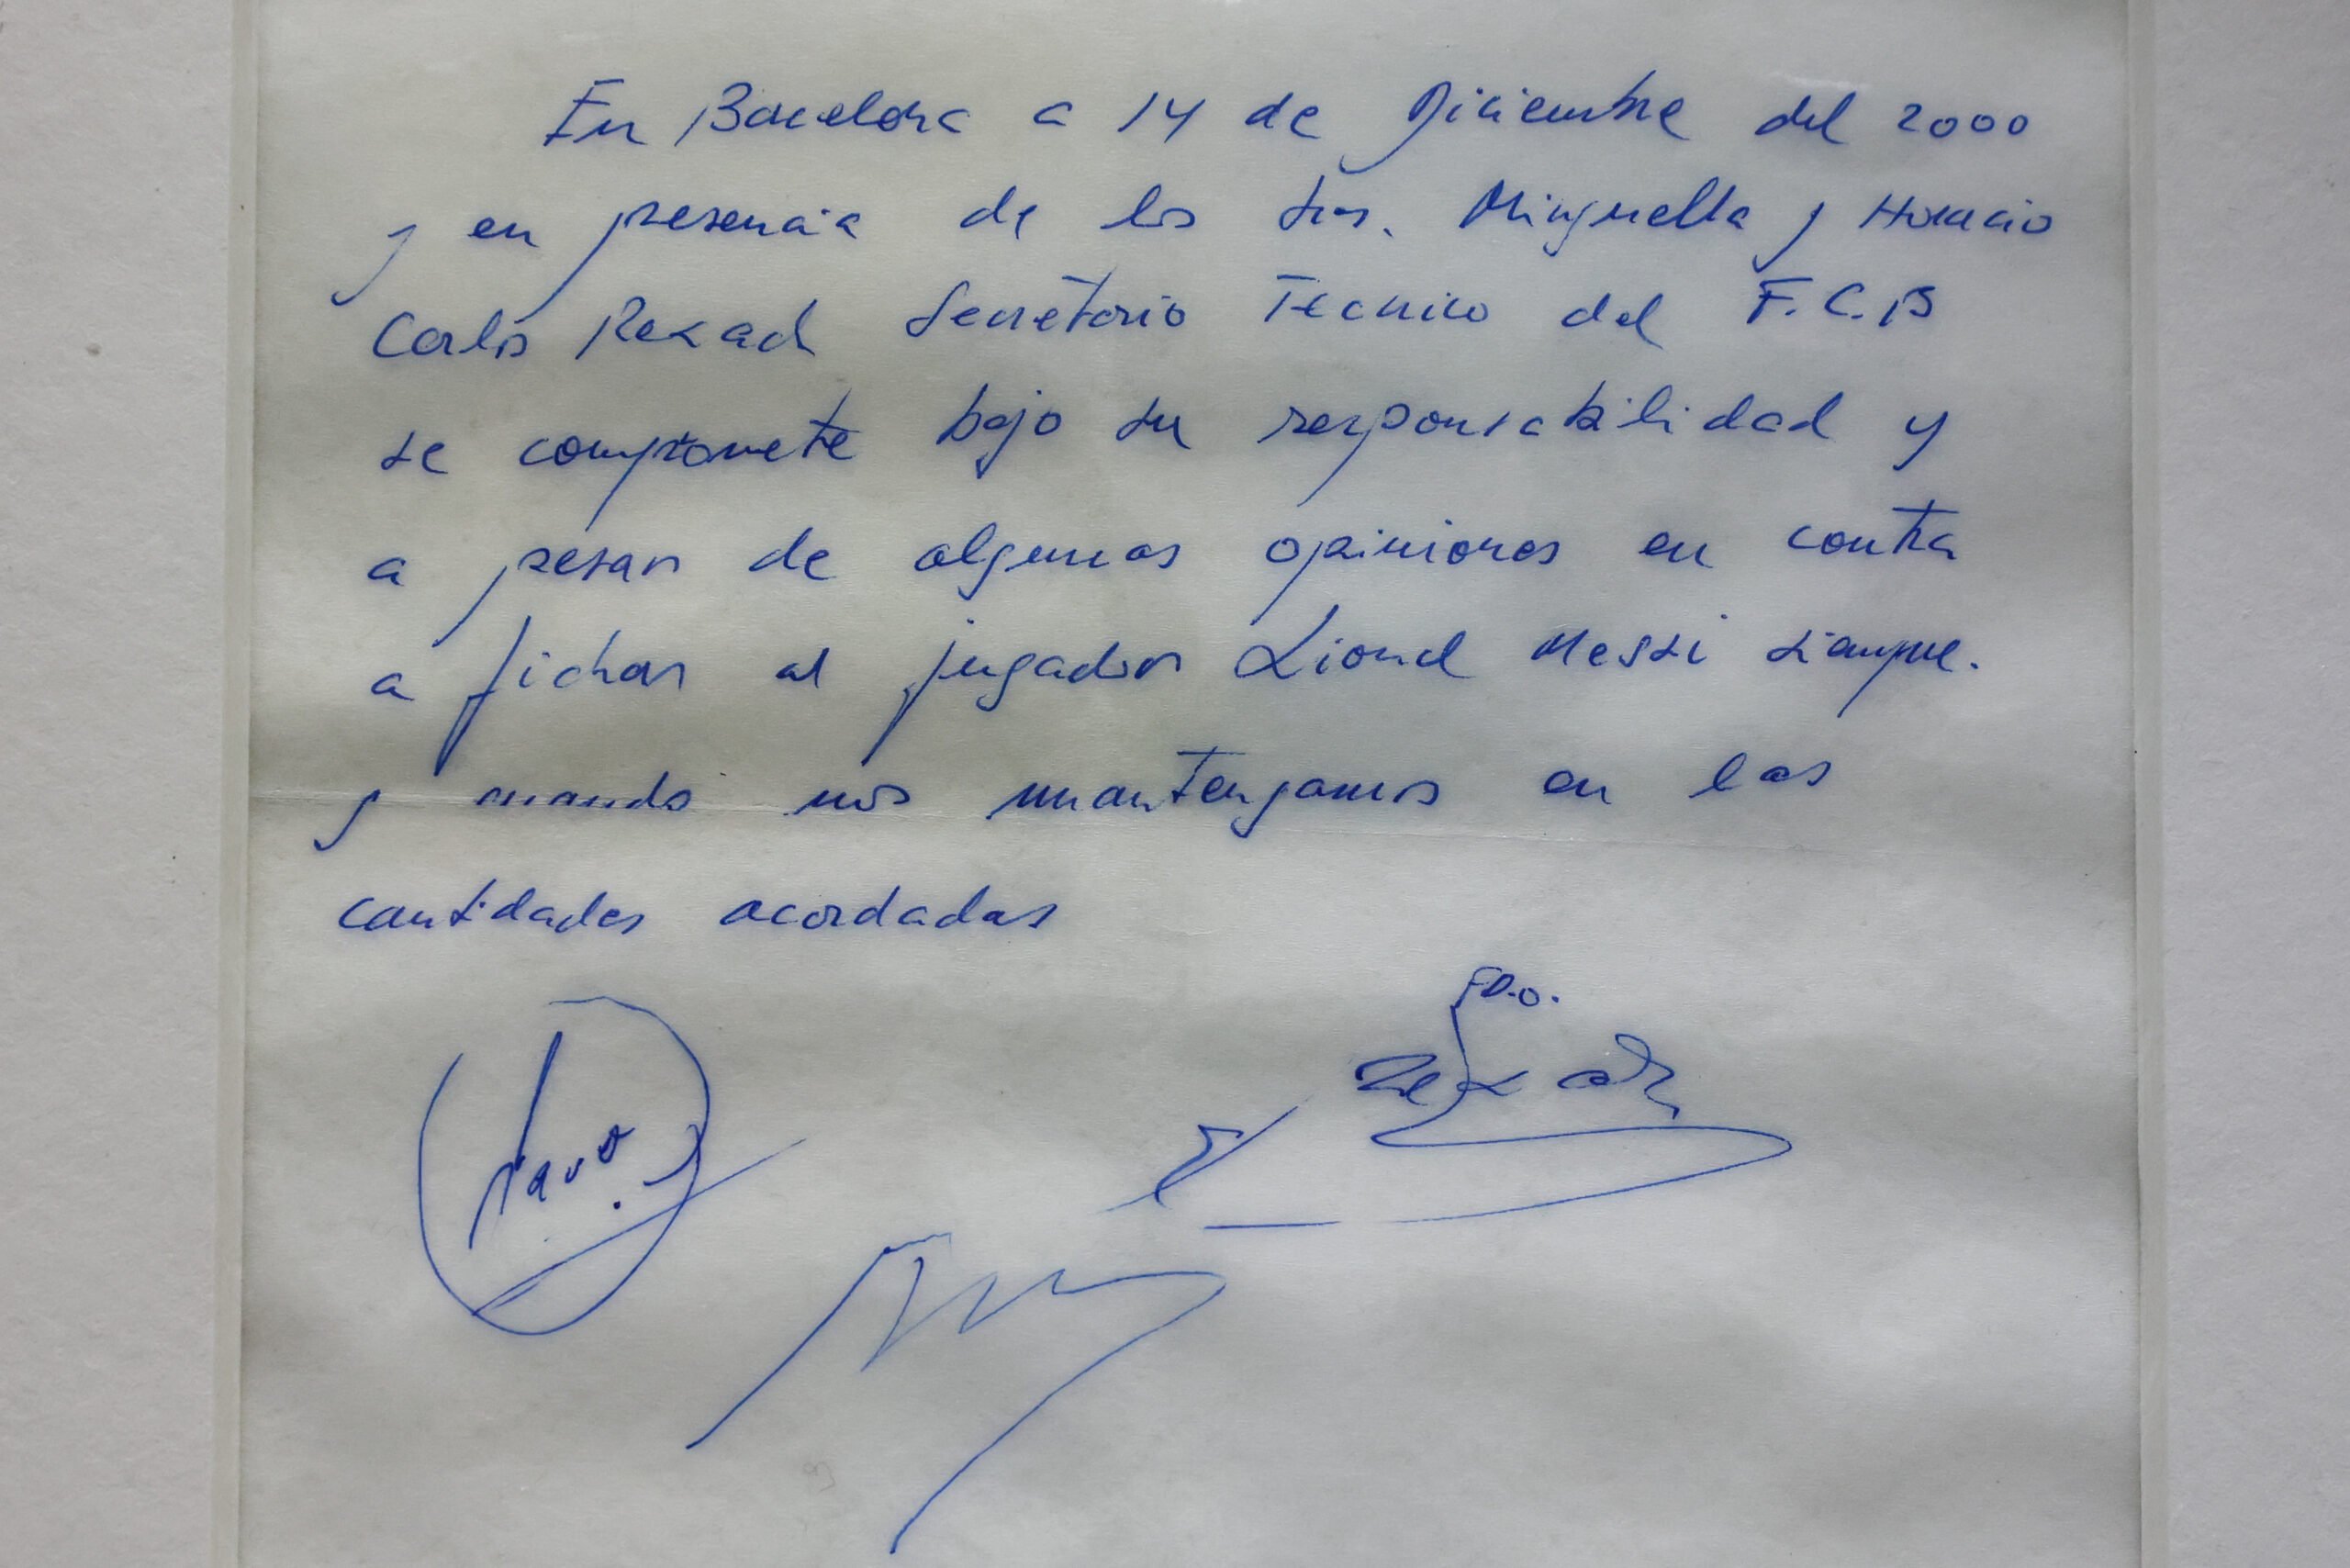 En Barcelona a 14 de Diciembre del 2000
y en presencia de los Srs. Minguella y Horacio
Carlos Rexach Secretario Tecnico del F.C.B
se compromete bajo su responsabilidad y
a pesar de algunas opiniones en contra
a fichar al jugador Lionel Messi siempre.
y cuando nos mantengamos en las
cantidades acordadas
FD.O.
Rexach